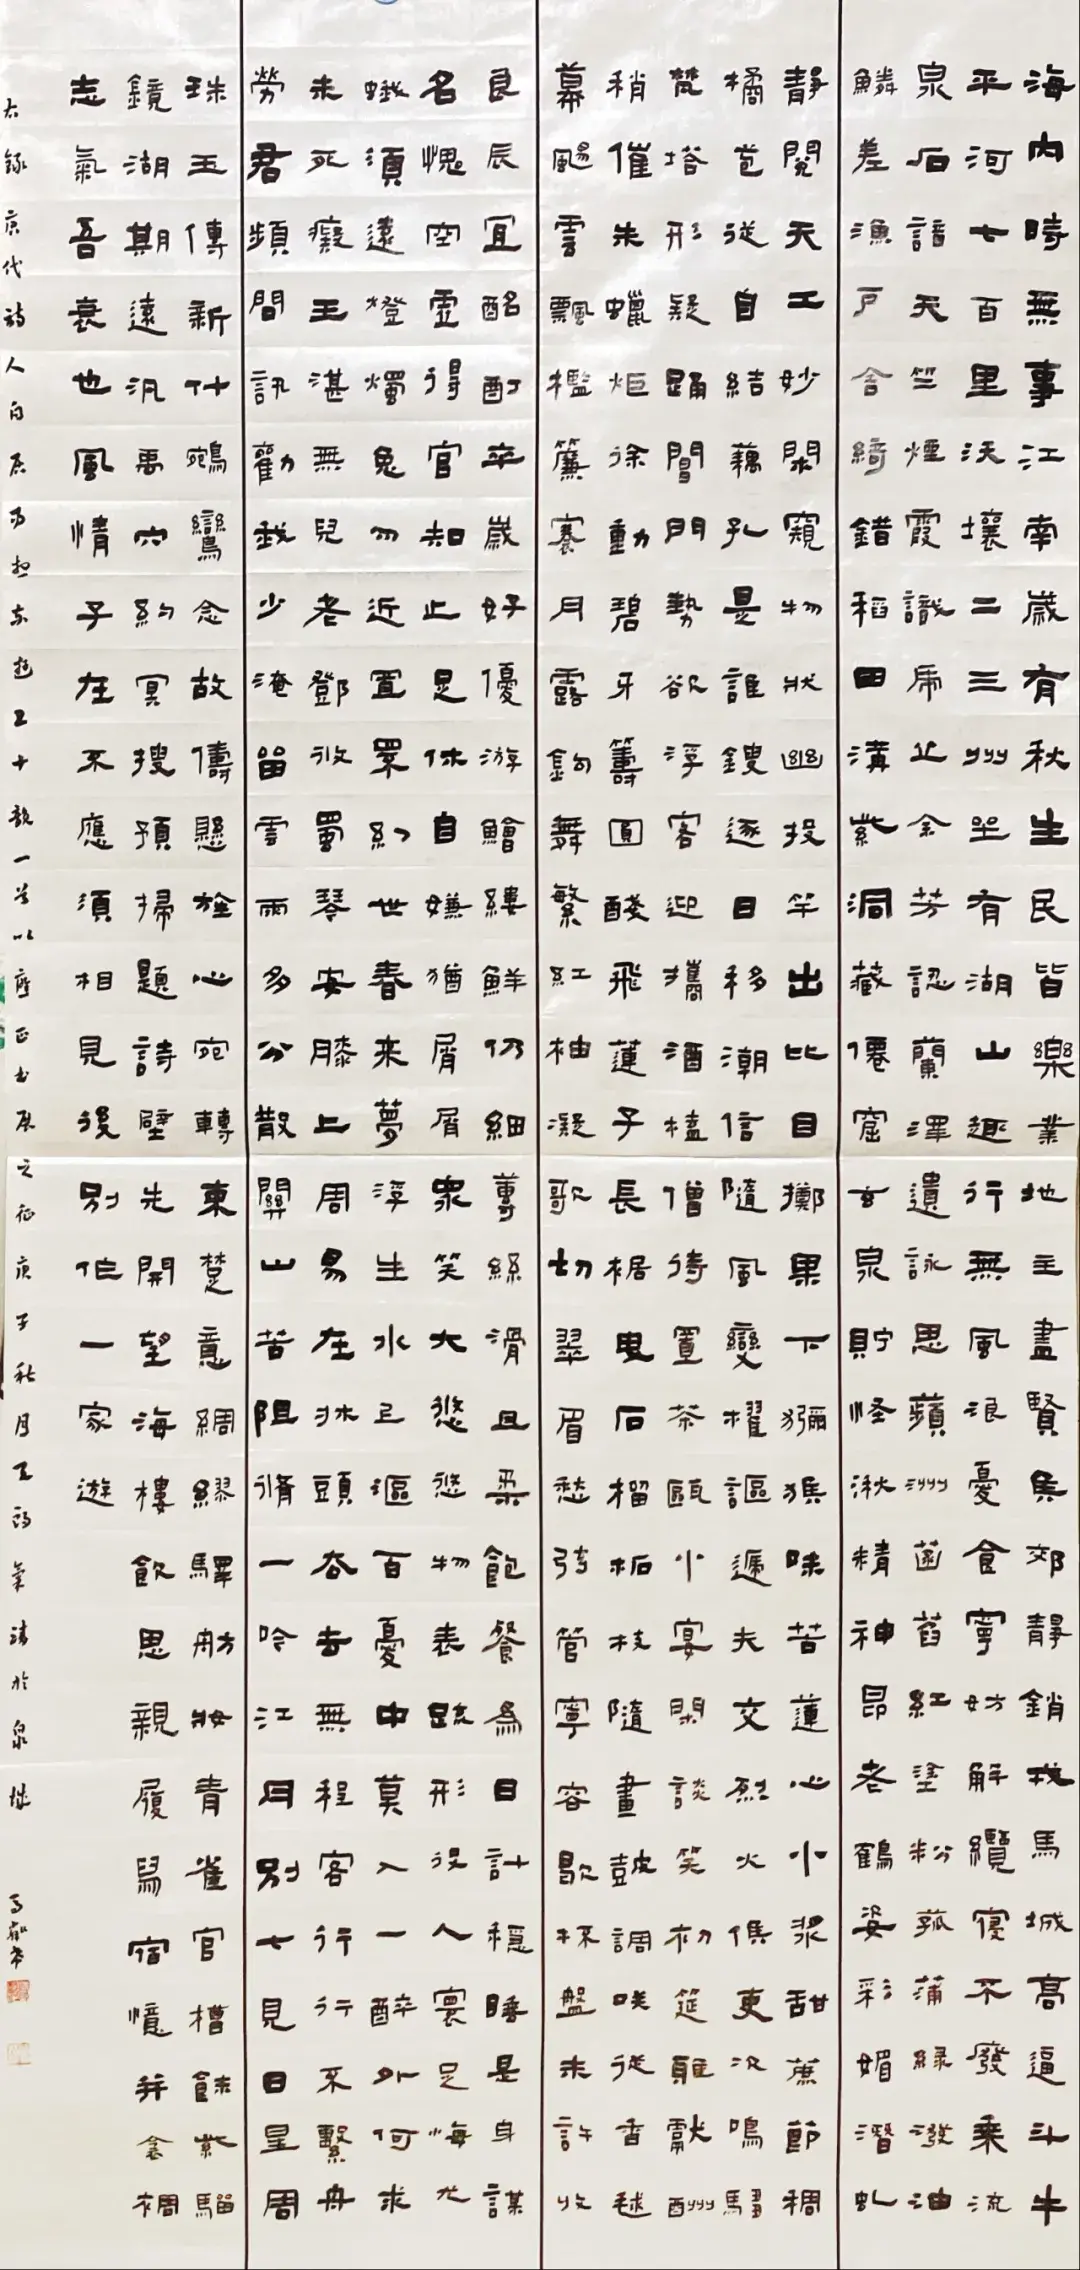 海内時無事江南歲有秋生民皆樂業地主盡賢矦郊靜銷戎馬城高逼斗牛
平河七百里沃壤二三州坐有湖山趣行無風浪憂食寧妨解纜寢不廢乘流
泉石諳天竺煙霞識虎丘余芳認蘭澤遺詠思蘋洲菡萏紅塗粉菰蒲綠潑油
鱗差漁戶舍綺錯稻田溝紫洞藏僊窟玄泉貯怪湫精神昂老鶴姿彩媚潛虯
靜閱天工妙閑窺物狀幽投竿出比目擲果下獼猴味苦蓮心小漿甜蔗節稠
橘苞從自結藕孔是誰鎪逐日移潮信隨風變櫂謳遞夫交烈火候吏次鳴騶
梵塔形疑踊閶門勢欲浮客迎攜酒榼僧待置茶甌小宴閑談笑初筵雅獻酬
稍催朱蠟炬徐動碧牙籌圓醆飛蓮子長裾曳石榴柘枝隨畫鼓調咲從香毬
幕颺雲飄檻簾褰月露鉤舞繁紅袖凝歌切翠眉愁弦管寧容歇杯盤未許收
良辰宜酩酊卒歲好優游鱠縷鮮仍細蓴絲滑且柔飽餐為日計穩睡是身謀
名愧空虛得官知止足休自嫌猶屑屑衆笑大悠悠物表疏形役人寰足悔尤
蛾須遠燈燭兔勿近罝罘幻世春來夢浮生水上漚百憂中莫入一醉外何求
未死癡王湛無兒老鄧攸蜀琴安膝上周易在牀頭去去無程客行行不繫舟
勞君頻問訊勸我少淹留雲雨多分散關山苦阻脩一吟江月別七見日星周
珠玉傳新什鵷鸞念故儔懸旌心宛轉束楚意綢繆驛舫妝青雀官槽秣紫騮
鏡湖期遠汎禹穴約冥搜預掃題詩壁先開望海樓飲思親履舄宿憶并衾裯
志氣吾衰也風情子在不應須相見後別作一家遊
右錄唐代詩人白居易想東遊五十韻一首以應正書展之征庚子秋月於泉城